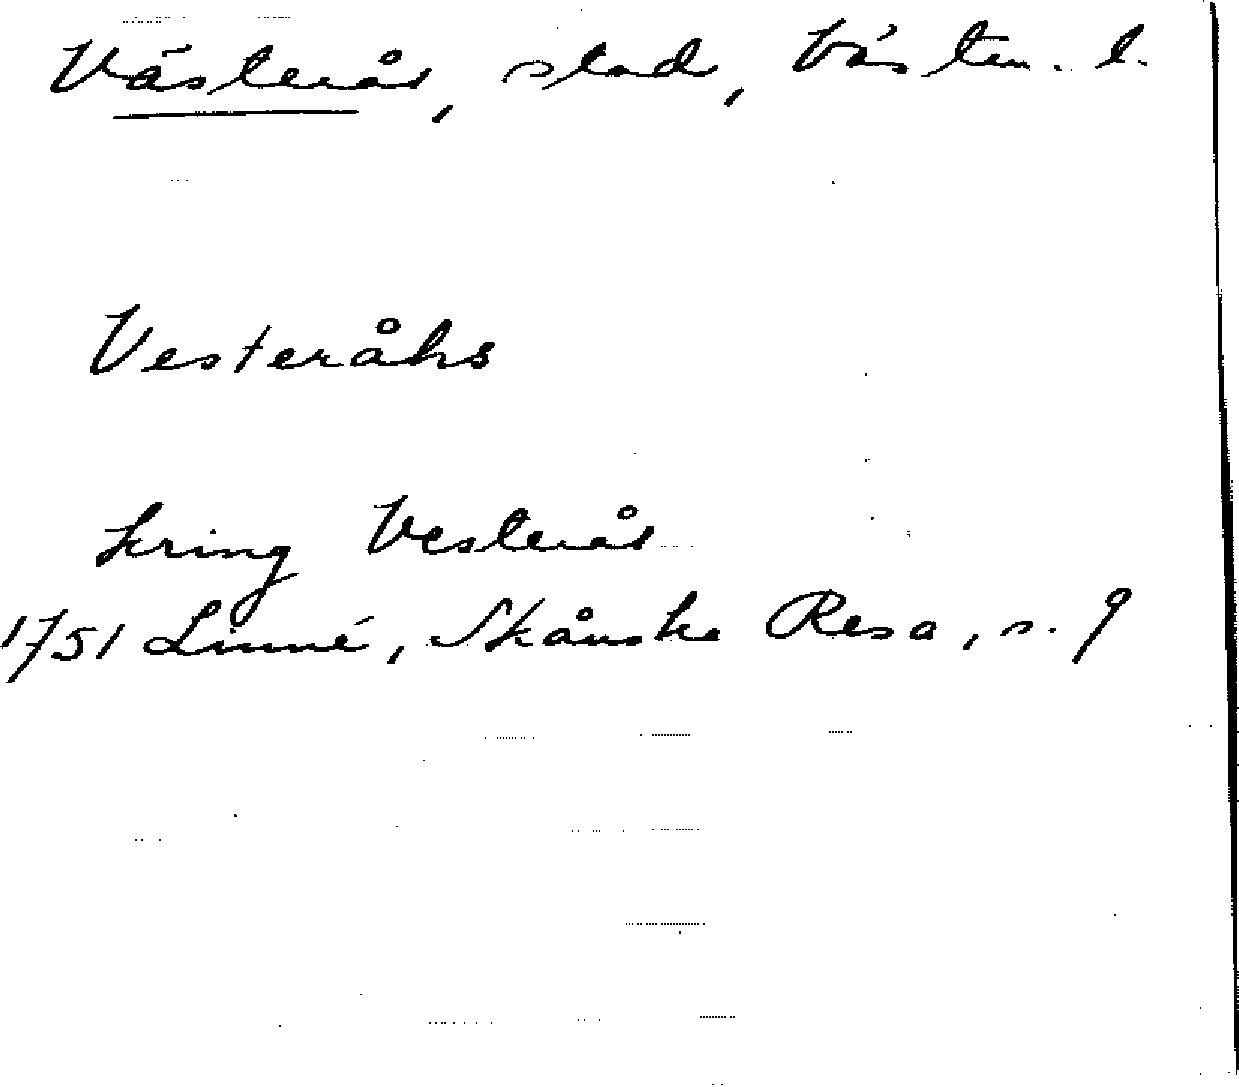 Västerås, stad, Västm. l.
Vesteråhs
kring Vesterås
1751 Linné, Skånska Resa, s. 9